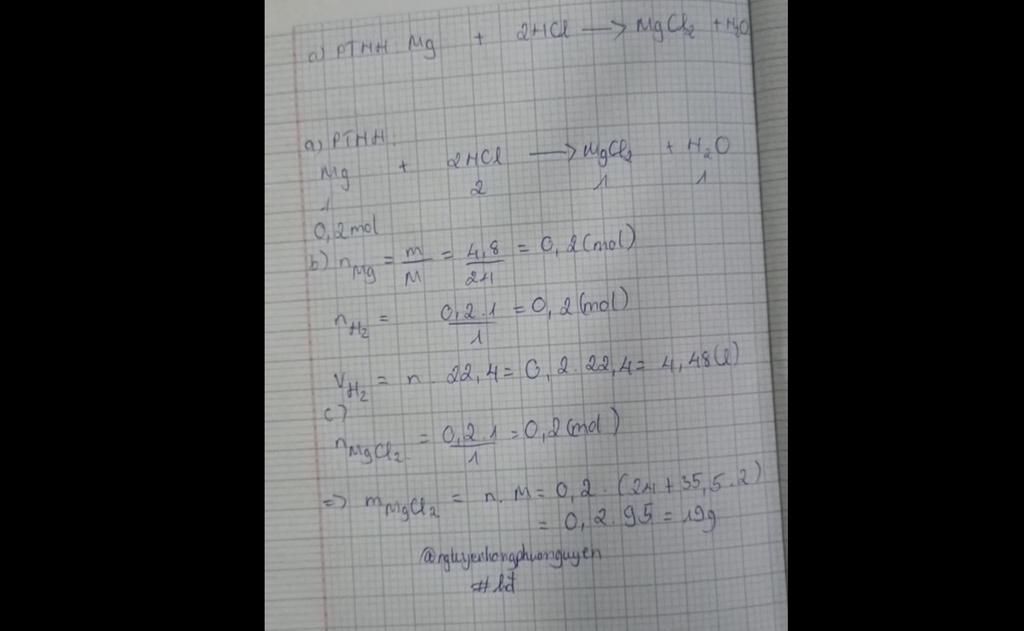 a) PTHH Mg + 2HCl → MgCl2 + H2O
a) PTHH
Mg + 2HCl → MgCl2 + H2O
1 2 1 1
0,2mol
b) nMg = m/M = 4,8/24 = 0,2 (mol)
nH2 = 0,2.1/1 = 0,2 (mol)
VH2 = n. 22,4 = 0,2. 22,4 = 4,48 (l)
c)
nMgCl2 = 0,2.1/1 = 0,2 (mol)
=> mMgCl2 = n. M = 0,2. (24 + 35,5.2)
= 0,2.95 = 19g